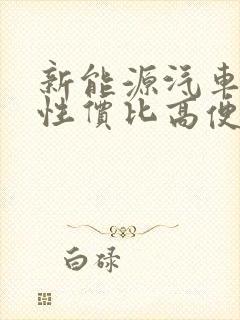 新能源汽車
性價比高便
白碌